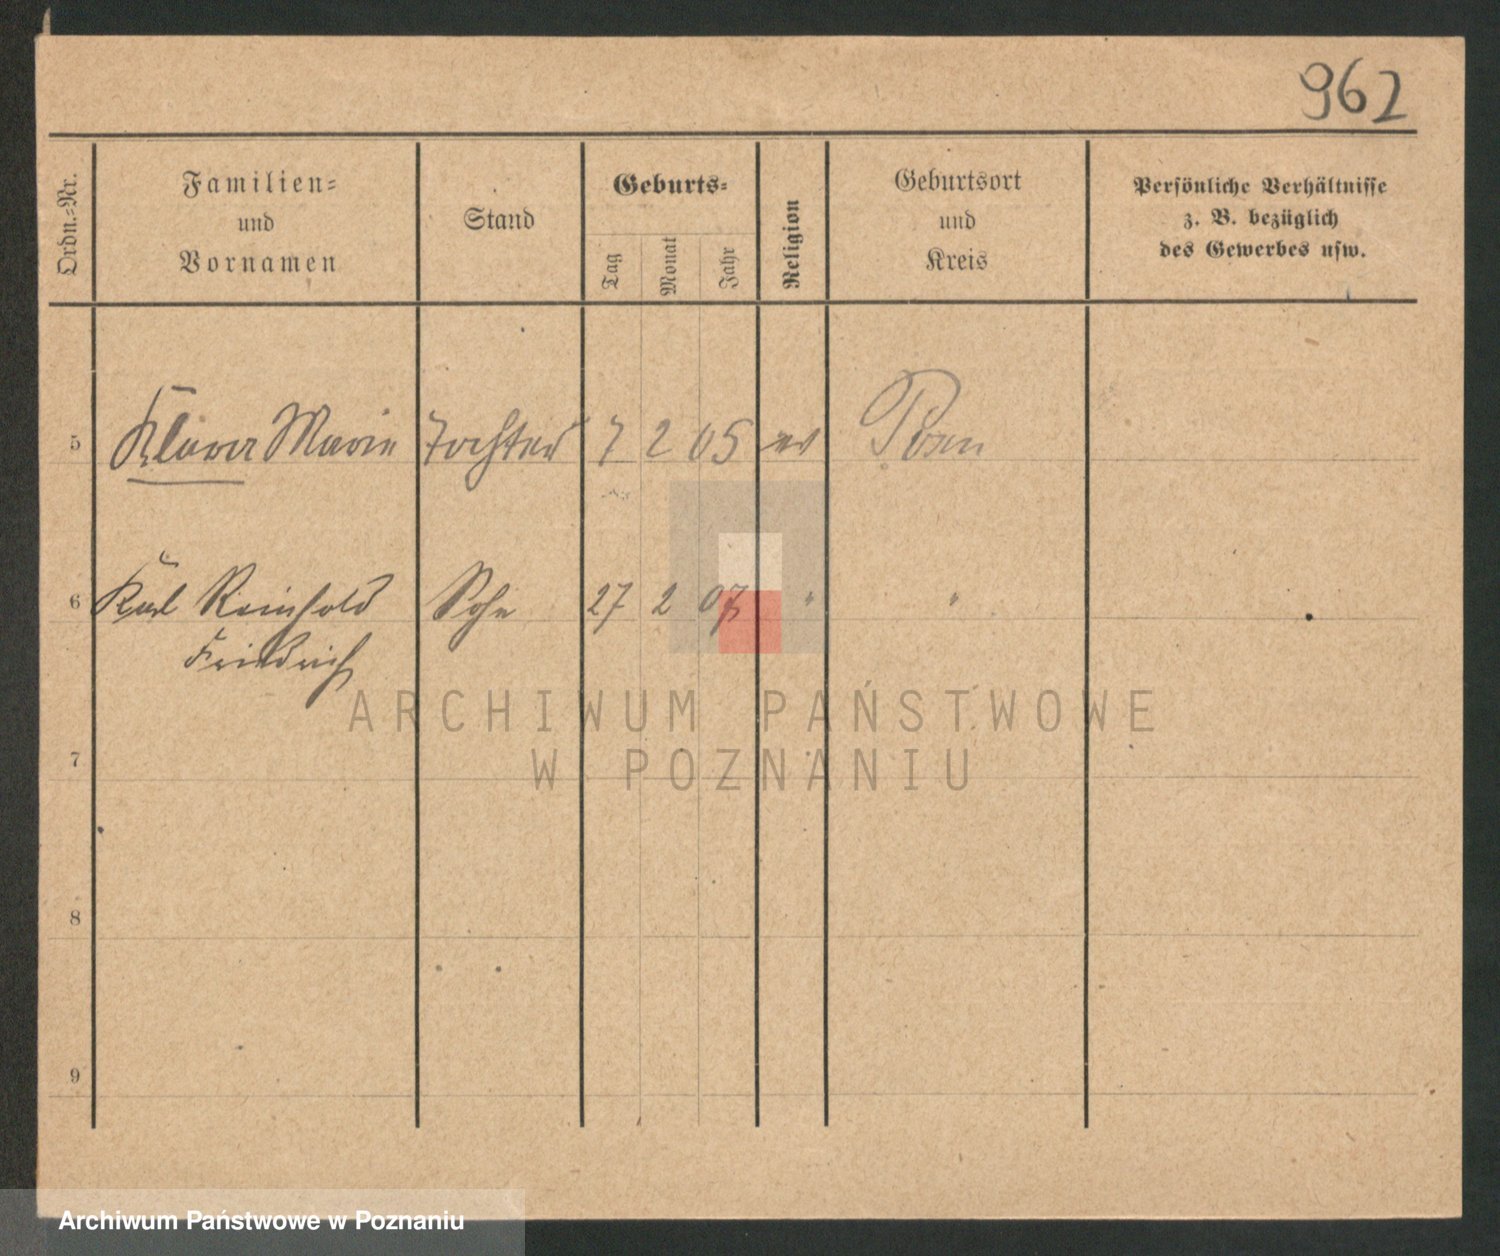 962
Ordn.-Nr.
Familien-
und
Vornamen
Stand
Geburts-
Tag
Monat
Jahr
Religion
Geburtsort
und
Kreis
Persönliche Verhältnisse
z. B. bezüglich
des Gewerbes usw.
5 Klara Marie Tochter 7 2 05 ev Posen
6 Karl Reinhold Sohn 27 2 07 " "
Friedrich
7
8
9
ARCHIWUM PAŃSTWOWE
W POZNANIU
Archiwum Państwowe w Poznaniu